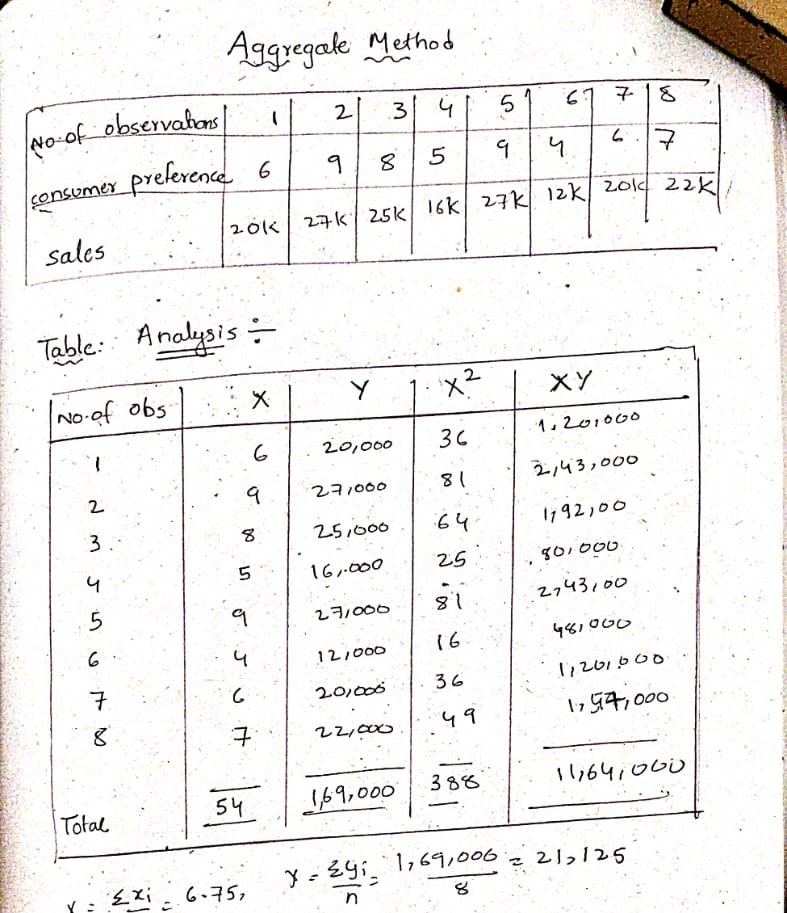 Aggregate Method
No. of observations 1 2 3 4 5 6 7 8
consumer preference 6 9 8 5 9 4 6 7
sales 20K 27K 25K 16K 27K 12K 20K 22K
Table: Analysis ÷
No. of obs X Y X² XY
1 6 20,000 36 1,20,000
2 9 27,000 81 2,43,000
3. 8 25,000 64 1,92,00
4 5 16,000 25 80,000
5 9 27,000 81 2,43,00
6 4 12,000 16 48,000
7 6 20,000 36 1,20,000
8 7 22,000 49 000
Total 54 1,69,000 388 11,64,000
= Σxi = 6.75, Y = Σyi/n = 1,69,000/8 = 21,125